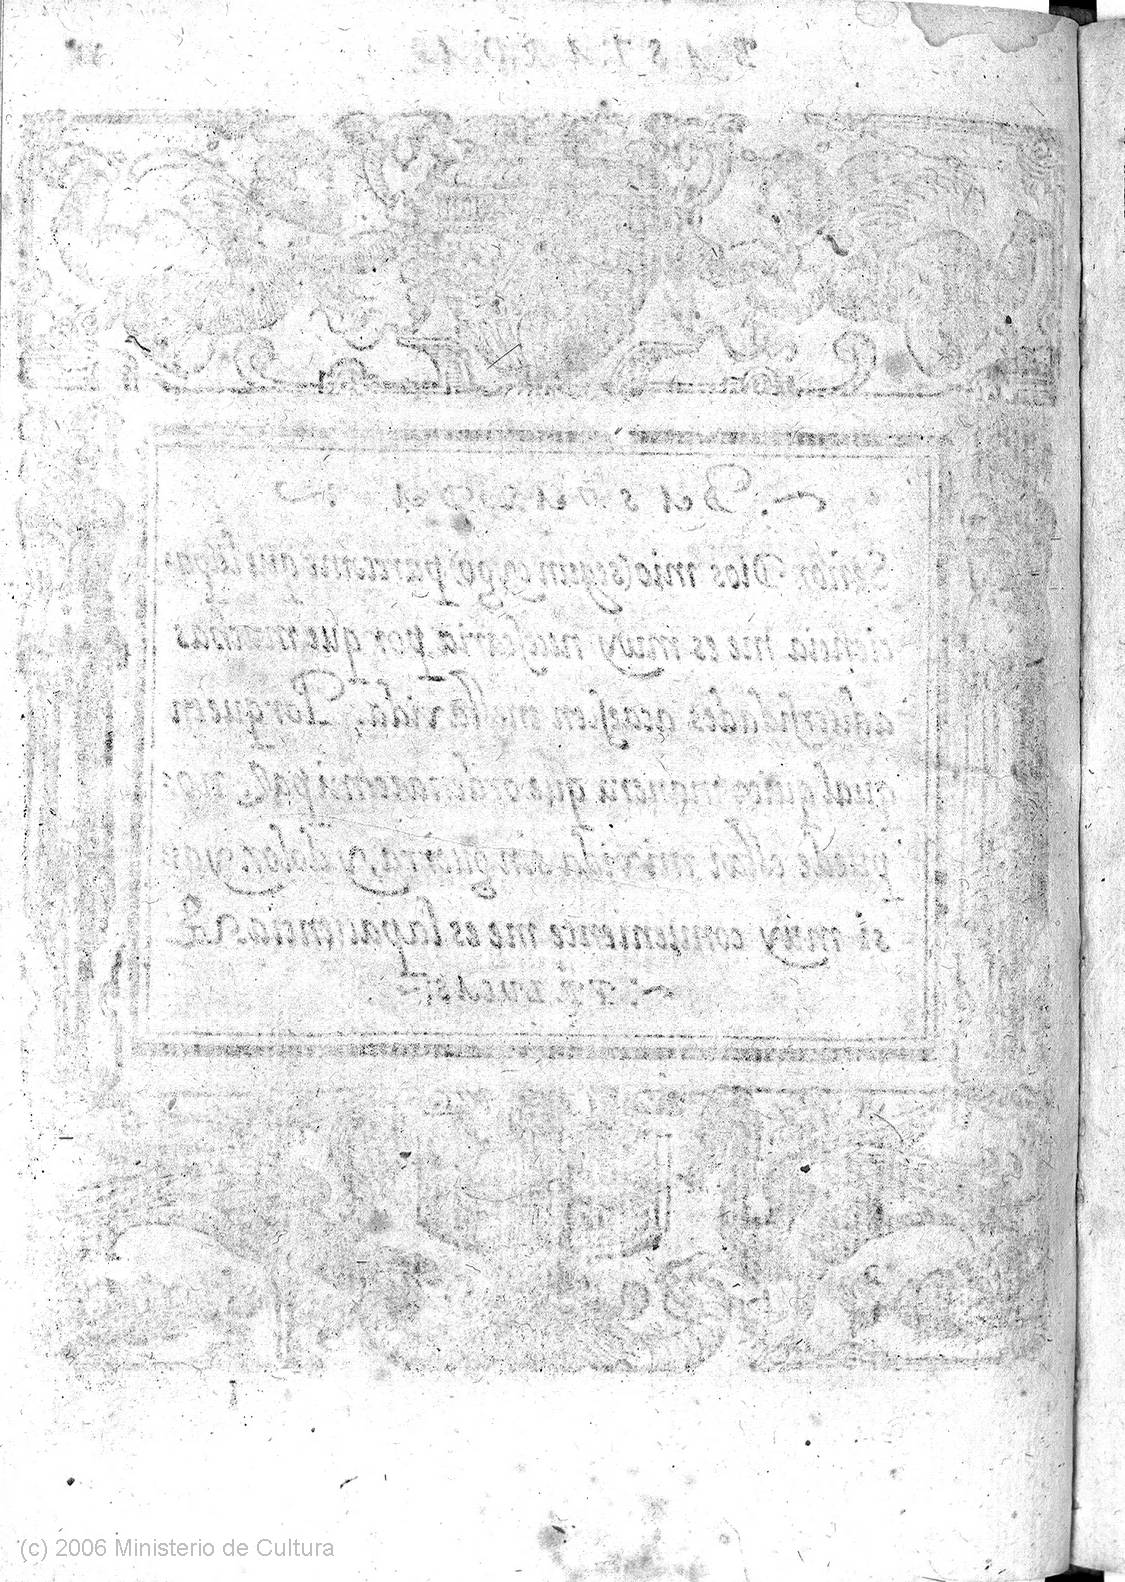 BASTARDA
BASTARDA
Señor Dios mio (segun q̃ yo) pareceme que la pa-
ciencia me es muy nesçesaria por que muchas
aduersidades acaesçen en esta vida, Porque en
qualquiere manera que ordenare mi paz, no
puede estar mi vida sin guerra, y dolor, y as-
si muy conueniente me es la paciencia.
F.º LUCAS
(c) 2006 Ministerio de Cultura